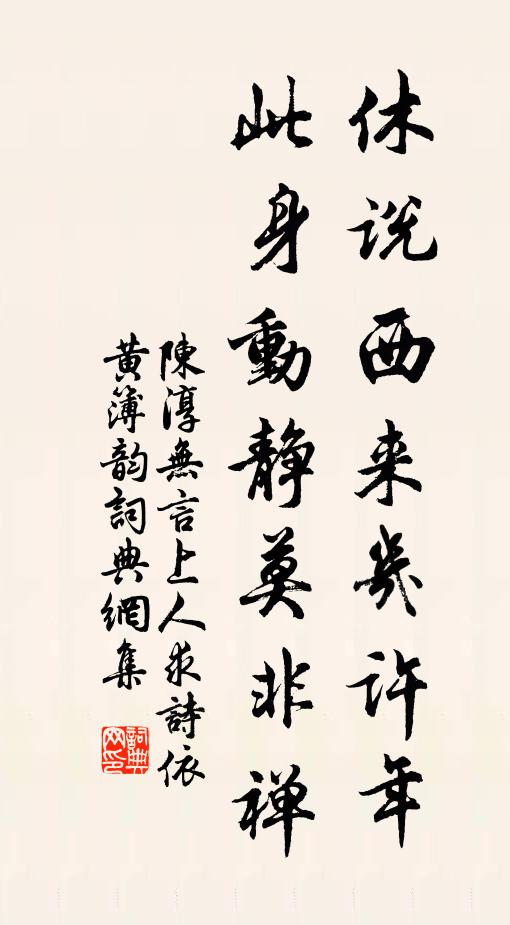 休说西来幾许年
此身動静莫非禅
陳淳無言上人求詩依
黄簿韵詞典網集
詞典網印